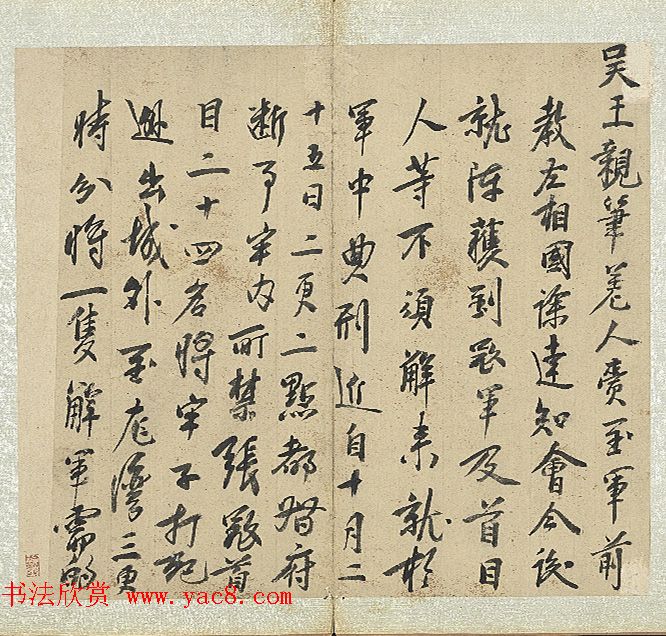 吴王親筆差人賫至軍前
教左相國徐達知會今後
就陣獲到寇軍及首目
人等不須解來就於
軍中典刑近自十月二
十五日二更二點都督府
斷事牢內所禁張寇首
目二十四名將牢子打死
出城外至龍灣三更
時分將一隻解軍需的
书法欣赏 www.yac8.com